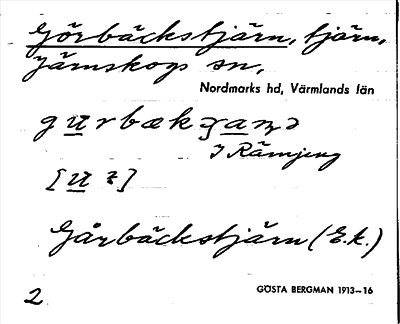 Görbäckstjärn, tjärn,
Järnskogs sn,
Nordmarks hd, Värmlands län
J Rämjeng
[u ɛ]
Gårbäckstjärn (E.k.)
2 GÖSTA BERGMAN 1913–16